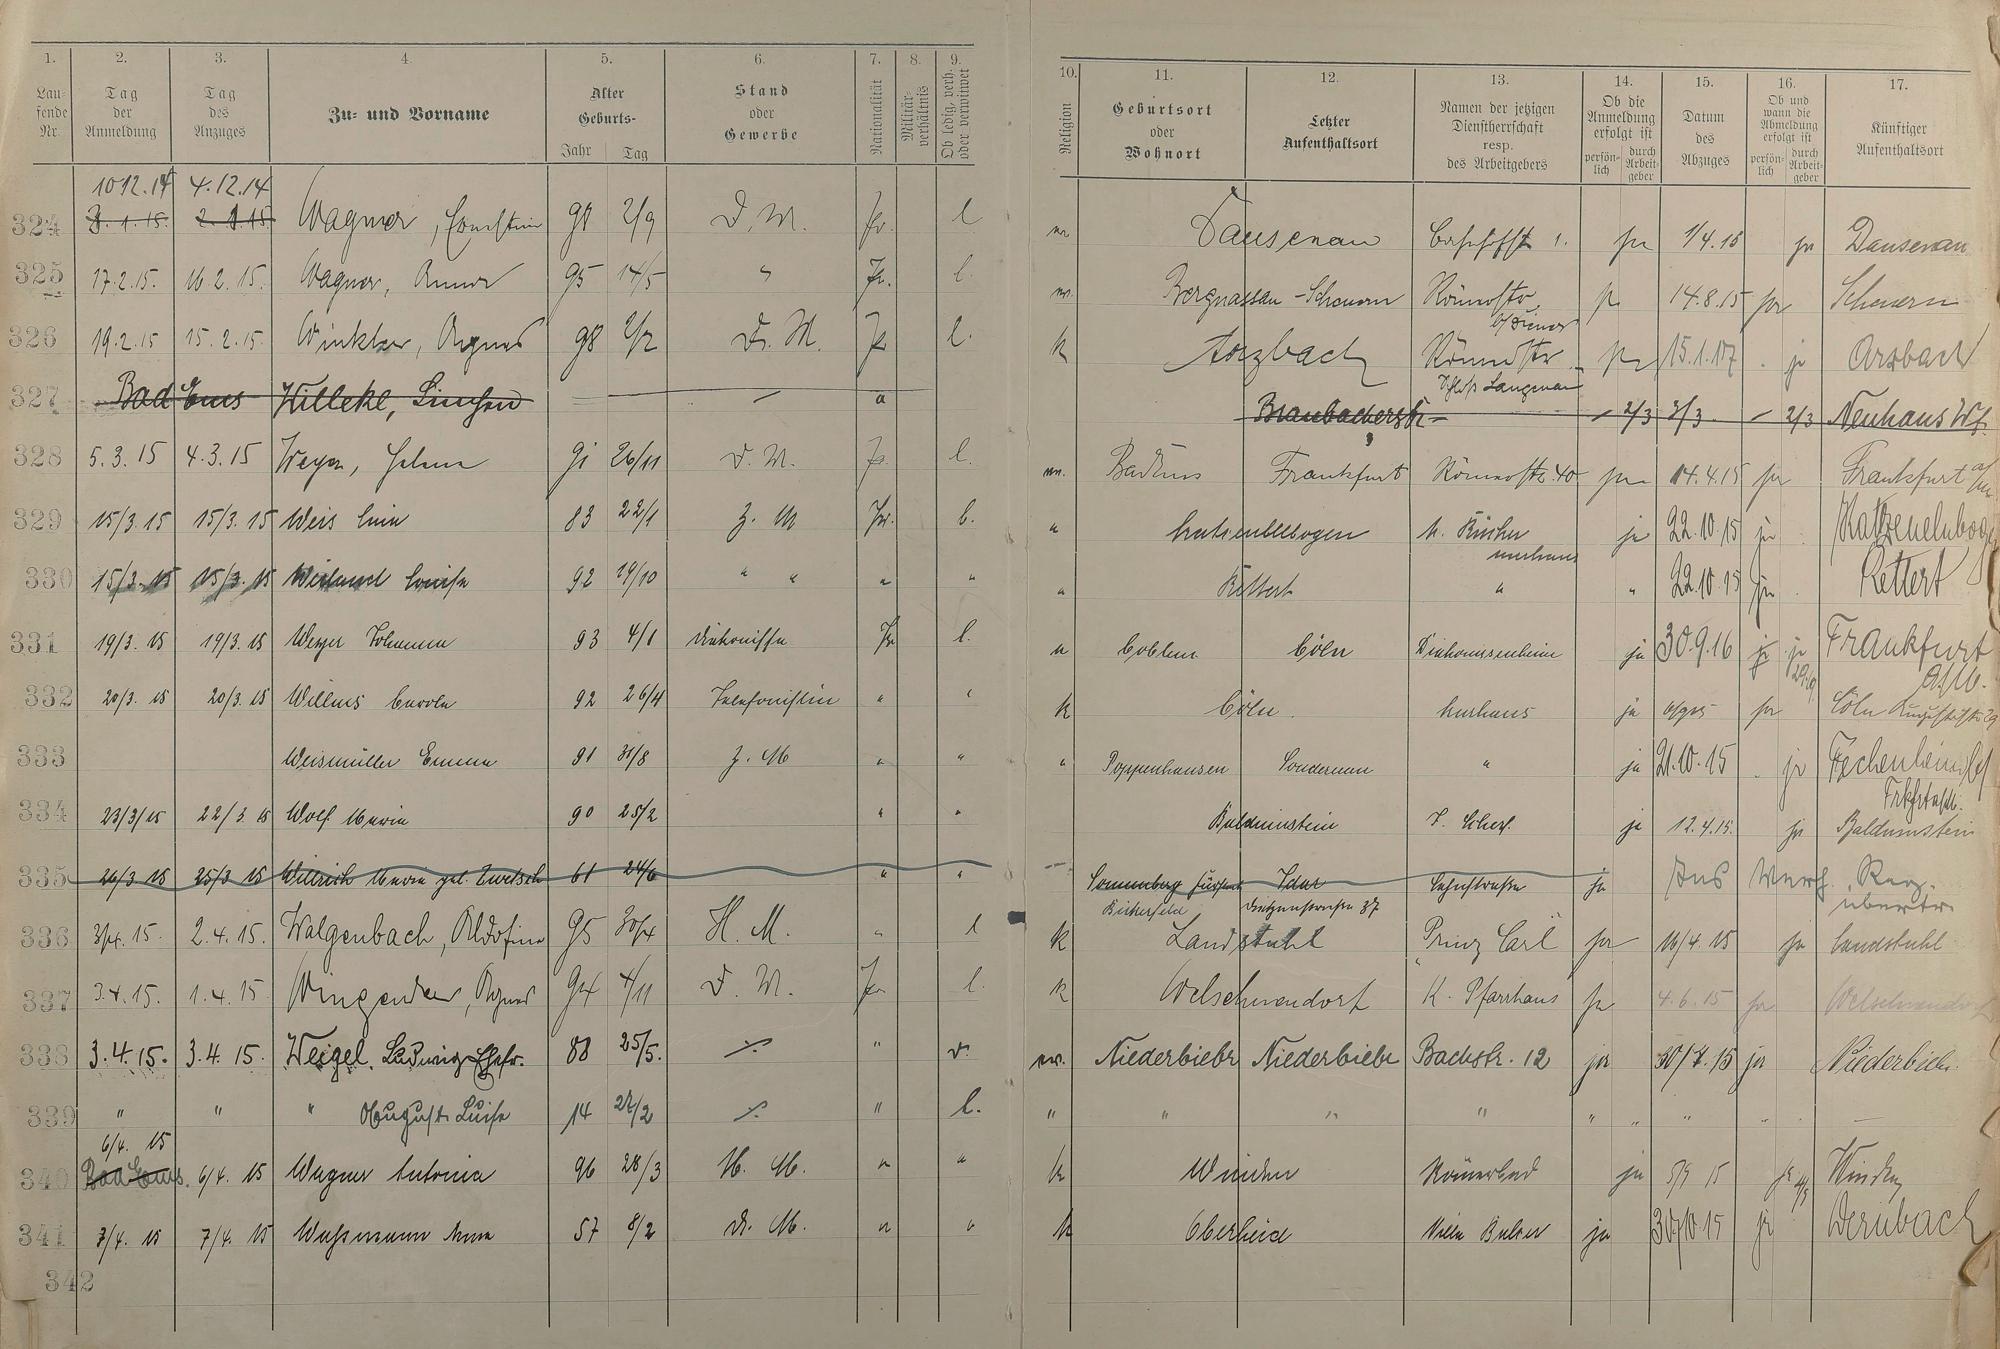 1. 2. 3. 4. 5. 6. 7. 8. 9. 10. 11. 12. 13. 14. 15. 16. 17.
Lau-
fende
Nr.
Tag
der
Anmeldung
Tag
des
Anzuges
Zu- und Vorname
Alter
Geburts-
Jahr Tag
Stand
oder
Gewerbe
Nationalität
Militär-
verhältnis
Ob ledig, verh.
oder verwitwet
Religion
Geburtsort
oder
Wohnort
Letzter
Aufenthaltsort
Namen der jetzigen
Dienstherrschaft
resp.
des Arbeitgebers
Ob die
Anmeldung
erfolgt ist
persön-
lich
durch
Arbeit-
geber
Datum
des
Abzuges
Ob und
wann die
Abmeldung
erfolgt ist
persön-
lich
durch
Arbeit-
geber
Künftiger
Aufenthaltsort
10 12. 14 4. 12. 14
324 3. 1. 15. 2. 1. 15 Wagner, 98 2/9 D. M. Pr. l Dausenau ja 1/4. 15 ja Dausenau
325 17. 2. 15. 16. 2. 15. Wagner, Anna 95 14/5 " Pr. l. Bergnassau-Scheuern Römerstr. ja 14. 8. 15 ja Scheuern
326 19. 2. 15 15. 2. 15. Winkler, Agnes 98 2/2 D. M. Pr l. k Arzbach Römerstr ja 15. 1. 17 ja Arzbach
Schloß Langenau
327 Bad Ems Willeke, Linchen Braubacherstr 2/3 3/3. 2/3 Neuhaus Wf.
328 5. 3. 15 4. 3. 15 Weyer, 91 26/11 D. M. Pr. l. Bad Ems Frankfurt Römerstr. 40 ja 14. 4. 15 ja Frankfurt a/M.
329 15/3. 15 15/3. 15 Weis 83 22/1 Z. M Pr. l. " Katzenellbogen ja 22. 10. 15 ja Katzenelnboge
Kurhaus
330 15/3. 15 15/3. 15 Weiland Louise 92 14/10 " " " " " Rettert " " 22. 10. 15 ja Rettert
331 19/3. 15 19/3. 15 Weyer Johanna 93 4/1 Diakonisse Pr l. " Coblenz Cöln Diakonissenheim ja 30. 9. 16 ja ja Frankfurt
a/M.
332 20/3. 15 20/3. 15 Willms Carola 92 26/4 Telefonistin " " k Cöln. Kurhaus ja ja Cöln
333 Weismüller Emma 91 31/8 Z. M " " " Poppenhausen " ja 21. 10. 15 ja Fechenheim
334 23/3/15 22/3. 15 Wolf Maria 90 25/2 " " Balduinstein ja 12. 4. 15. ja Balduinstein
335 26/3 15 25/3 15 Willrich Maria geb. 61 24/6 " " Sonnenberg Idar Lahnstraße ja Ins
Birkenfeld 37 übertr.
336 3/4. 15. 2. 4. 15. Walgenbach, Adolfine 95 30/4 H. M. " l k Landstuhl Prinz Carl ja 16/4. 15 ja Landstuhl
337 3. 4. 15. 1. 4. 15 Wingender, Agnes 94 4/11 D. M. Pr l. k Welschneudorf K. Pfarrhaus ja 4. 6. 15 ja Welschneudorf
338 3. 4. 15. 3. 4. 15. Weigel, Ludwig Ehefr. 88 25/5. " v. ev. Niederbiebr Niederbiebr Bachstr. 12 ja 30/4. 15 ja Niederbieb.
339 " " " Auguste Luise 14 22/2 " l. " " " " " " " " "
6/4. 15
340 Bad Ems. 6/4. 15 Wagner Antonia 96 28/3 H. M. " " k Winden Römerbad ja 5/9 15 ja 4/9 Winden
341 3/4. 15 7/4. 15 Waßmann Anna 57 8/2 D. M. " " k Oberheid Villa ja 30/10. 15 ja Dernbach
342